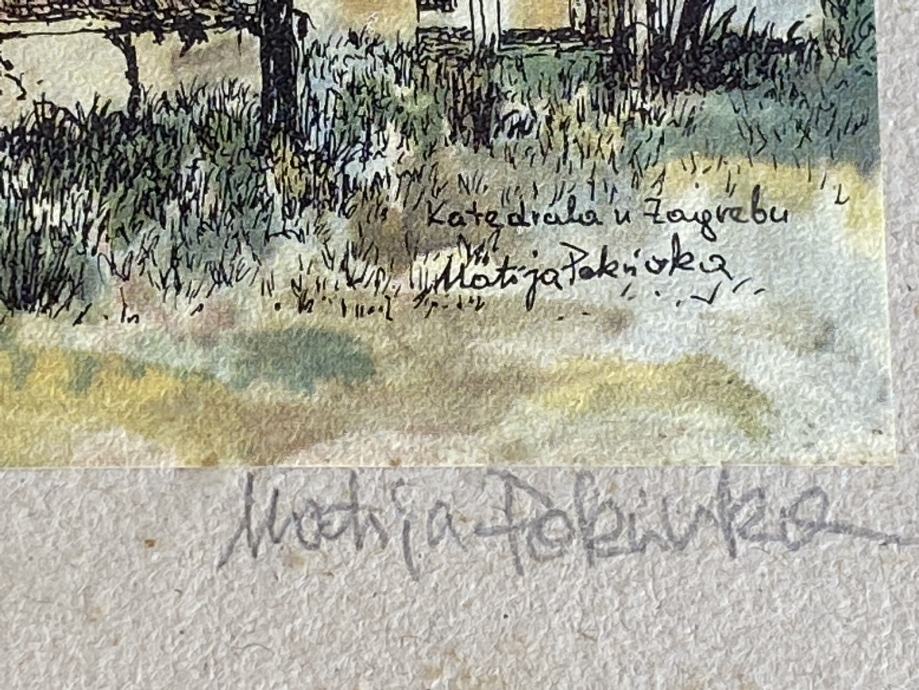 Katedrala u Zagrebu
Matija Pokrivka
Matija Pokrivka